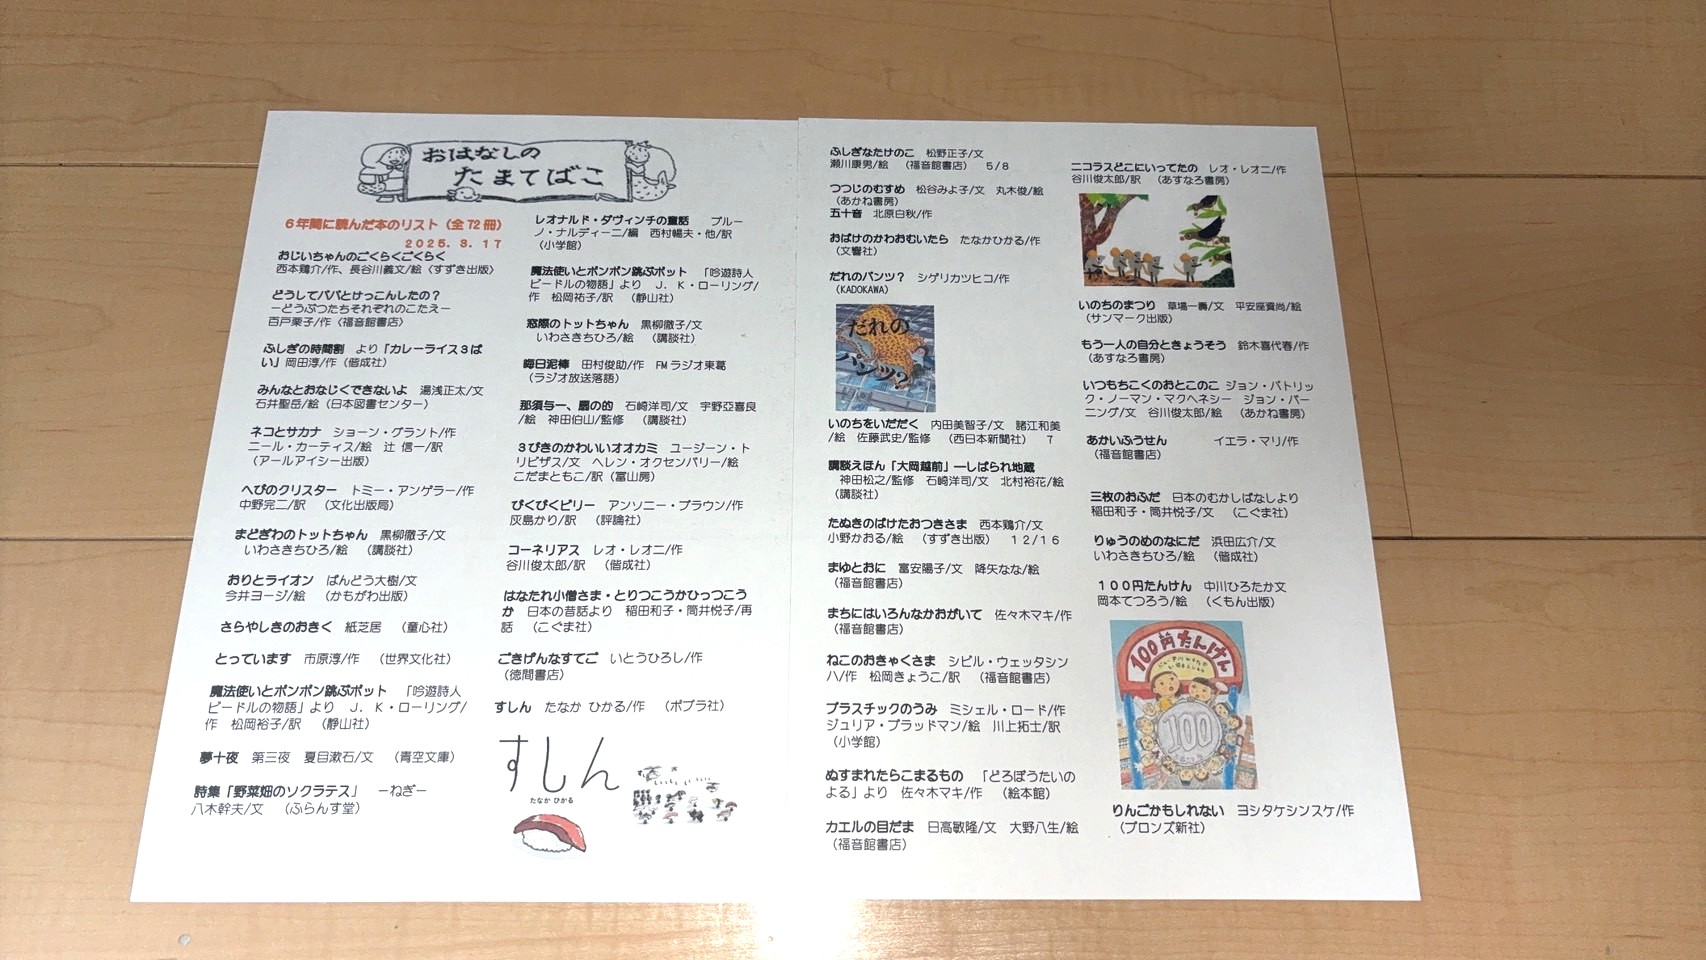 おはなしの
たまてばこ
６年間に読んだ本のリスト（全72冊）
２０２５．３．１７
おじいちゃんのごくらくごくらく
西本鶏介/作、長谷川義文/絵〈すずき出版〉
どうしてパパとけっこんしたの？
―どうぶつたちそれぞれのこたえ―
百戸栗子/作〈福音館書店〉
ふしぎの時間割　より「カレーライス３ば
い」岡田淳/作（偕成社）
みんなとおなじくできないよ　湯浅正太/文
石井聖岳/絵（日本図書センター）
ネコとサカナ　ショーン・グラント/作
ニール・カーティス/絵　辻 信一/訳
（アールアイシー出版）
へびのクリスター　トミー・アンゲラー/作
中野完二/訳　（文化出版局）
まどぎわのトットちゃん　黒柳徹子/文
いわさきちひろ/絵　（講談社）
おりとライオン　ばんどう大樹/文
今井ヨージ/絵　（かもがわ出版）
さらやしきのおきく　紙芝居　（童心社）
とっています　市原淳/作　（世界文化社）
魔法使いとポンポン跳ぶポット　「吟遊詩人
ビードルの物語」より　Ｊ．Ｋ・ローリング/
作　松岡裕子/訳　（静山社）
夢十夜　第三夜　夏目漱石/文　（青空文庫）
詩集「野菜畑のソクラテス」　―ねぎ―
八木幹夫/文　（ふらんす堂）
レオナルド・ダヴィンチの童話　ブルー
ノ・ナルディーニ/編　西村暢夫・他/訳
（小学館）
魔法使いとポンポン跳ぶポット　「吟遊詩人
ビードルの物語」より　Ｊ．Ｋ・ローリング/
作　松岡祐子/訳　（静山社）
窓際のトットちゃん　黒柳徹子/文
いわさきちひろ/絵　（講談社）
晦日泥棒　田村俊助/作　FMラジオ東葛
（ラジオ放送落語）
那須与一、扇の的　石崎洋司/文　宇野亞喜良
/絵　神田伯山/監修　（講談社）
３びきのかわいいオオカミ　ユージーン・ト
リビザス/文　ヘレン・オクセンバリー/絵
こだまともこ/訳（冨山房）
びくびくビリー　アンソニー・ブラウン/作
灰島かり/訳　（評論社）
コーネリアス　レオ・レオニ/作
谷川俊太郎/訳　（偕成社）
はなたれ小僧さま・とりつこうかひっつこう
か　日本の昔話より　稲田和子・筒井悦子/再
話　（こぐま社）
ごきげんなすてご　いとうひろし/作
（徳間書店）
すしん　たなか ひかる/作　（ポプラ社）
すしん
たなか ひかる
ふしぎなたけのこ　松野正子/文
瀬川康男/絵　（福音館書店）　５/８
つつじのむすめ　松谷みよ子/文　丸木俊/絵
（あかね書房）
五十音　北原白秋/作
おばけのかわおむいたら　たなかひかる/作
（文響社）
だれのパンツ？　シゲリカツヒコ/作
（KADOKAWA）
だれの
パンツ？
いのちをいただく　内田美智子/文　諸江和美
/絵　佐藤武史/監修　（西日本新聞社）　７
講談えほん「大岡越前」―しばられ地蔵
神田松之/監修　石崎洋司/文　北村裕花/絵
（講談社）
たぬきのばけたおつきさま　西本鶏介/文
小野かおる/絵　（すずき出版）　１２/１６
まゆとおに　富安陽子/文　降矢なな/絵
（福音館書店）
まちにはいろんなかおがいて　佐々木マキ/作
（福音館書店）
ねこのおきゃくさま　シビル・ウェッタシン
ハ/作　松岡きょうこ/訳　（福音館書店）
プラスチックのうみ　ミシェル・ロード/作
ジュリア・ブラッドマン/絵　川上拓士/訳
（小学館）
ぬすまれたらこまるもの　「どろぼうたいの
よる」より　佐々木マキ/作　（絵本館）
カエルの目だま　日高敏隆/文　大野八生/絵
（福音館書店）
ニコラスどこにいってたの　レオ・レオニ/作
谷川俊太郎/訳　（あすなろ書房）
いのちのまつり　草場一壽/文　平安座資尚/絵
（サンマーク出版）
もう一人の自分ときょうそう　鈴木喜代春/作
（あすなろ書房）
いつもちこくのおとこのこ ジョン・パトリッ
ク・ノーマン・マクヘネシー　ジョン・バー
ニング/文　谷川俊太郎/絵　（あかね書房）
あかいふうせん　イエラ・マリ/作
（福音館書店）
三枚のおふだ　日本のむかしばなしより
稲田和子・筒井悦子/文　（こぐま社）
りゅうのめのなにだ　浜田広介/文
いわさきちひろ/絵　（偕成社）
１００円たんけん　中川ひろたか文
岡本てつろう/絵　（くもん出版）
100円たんけん
100
りんごかもしれない　ヨシタケシンスケ/作
（ブロンズ新社）